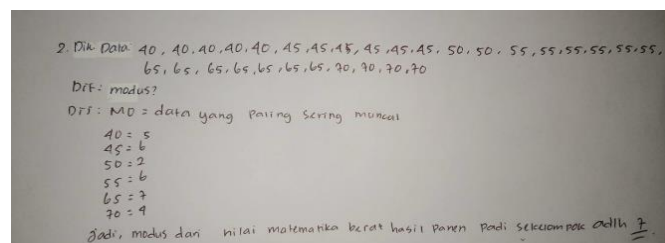 2. Dik Data 40, 40, 40, 40, 40, 45, 45, 45, 45, 45, 45, 50, 50, 55, 55, 55, 55, 55, 55,
65, 65, 65, 65, 65, 65, 65, 70, 70, 70, 70
Dit: modus?
Dij: MO = data yang paling sering muncul
40 = 5
45 = 6
50 = 2
55 = 6
65 = 7
70 = 4
jadi, modus dari nilai matematika berat hasil panen padi sekelompok adlh 7